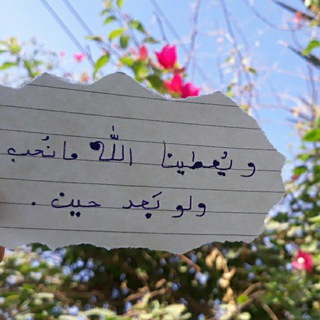 و يُعطينا اللّٰه مانُحب
ولو بَعد حين .